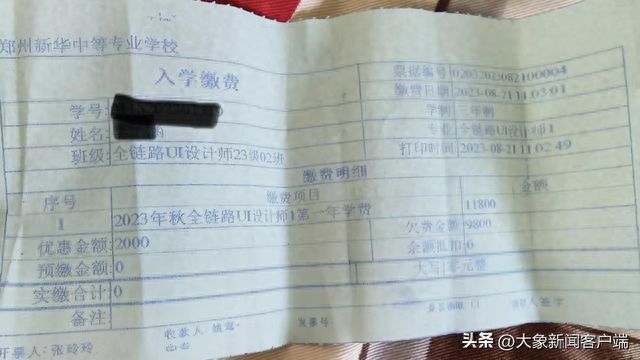 郑州新华中等专业学校
入学缴费
票据编号 02032023082100004
缴费日期 2023-08-21 11:03:01
学号:
学制 三年制
姓名
专业 全链路UI设计师1
班级: 全链路UI设计师23级02班
打印时间 2023-08-21 11:02:49
缴费明细
序号 缴费项目 金额
1 2023年秋全链路UI设计师1第一年学费 11800
优惠金额: 2000 欠费金额 9800
预缴金额 0 余额抵扣 0
实缴合计: 0 大写 零元整
备注:
开票人: 张玲玲 收款人
头条 @大象新闻客户端